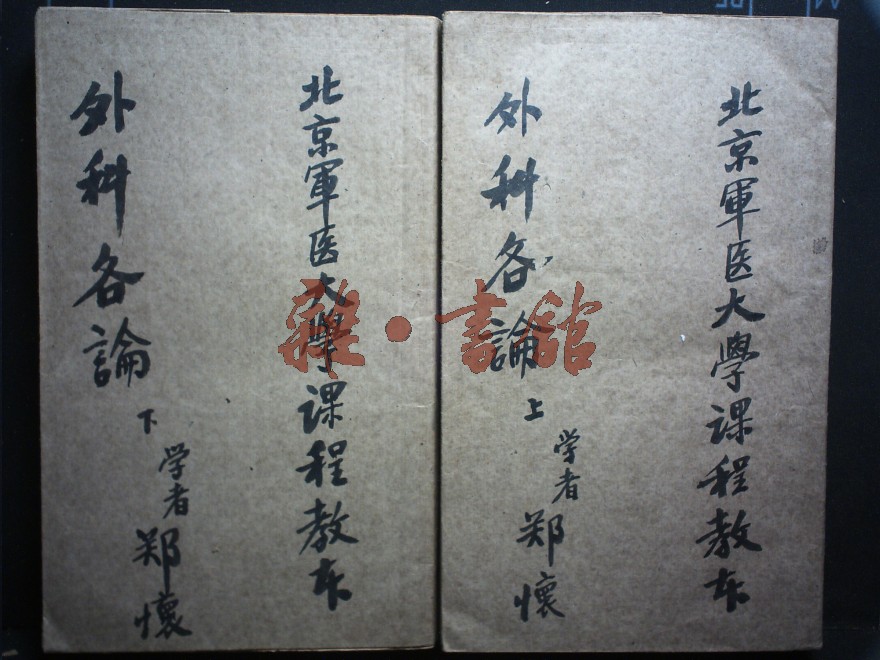 北京軍医大學课程教本
外科各論
上
学者
郑懷
北京軍医大學课程教本
外科各論
下
学者
郑懷
雜·書舘